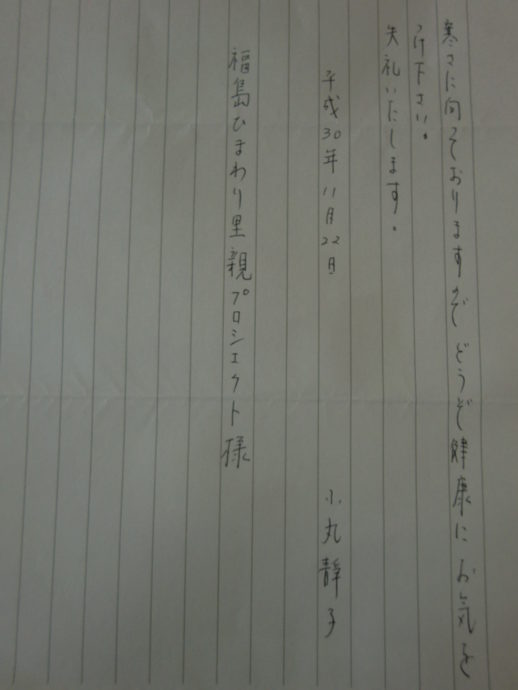 寒さに向っておりますので どうぞ健康に お気を
つけ下さい。
失礼いたします。
平成30年11月22日
小丸静子
福島ひまわり里親プロジェクト様